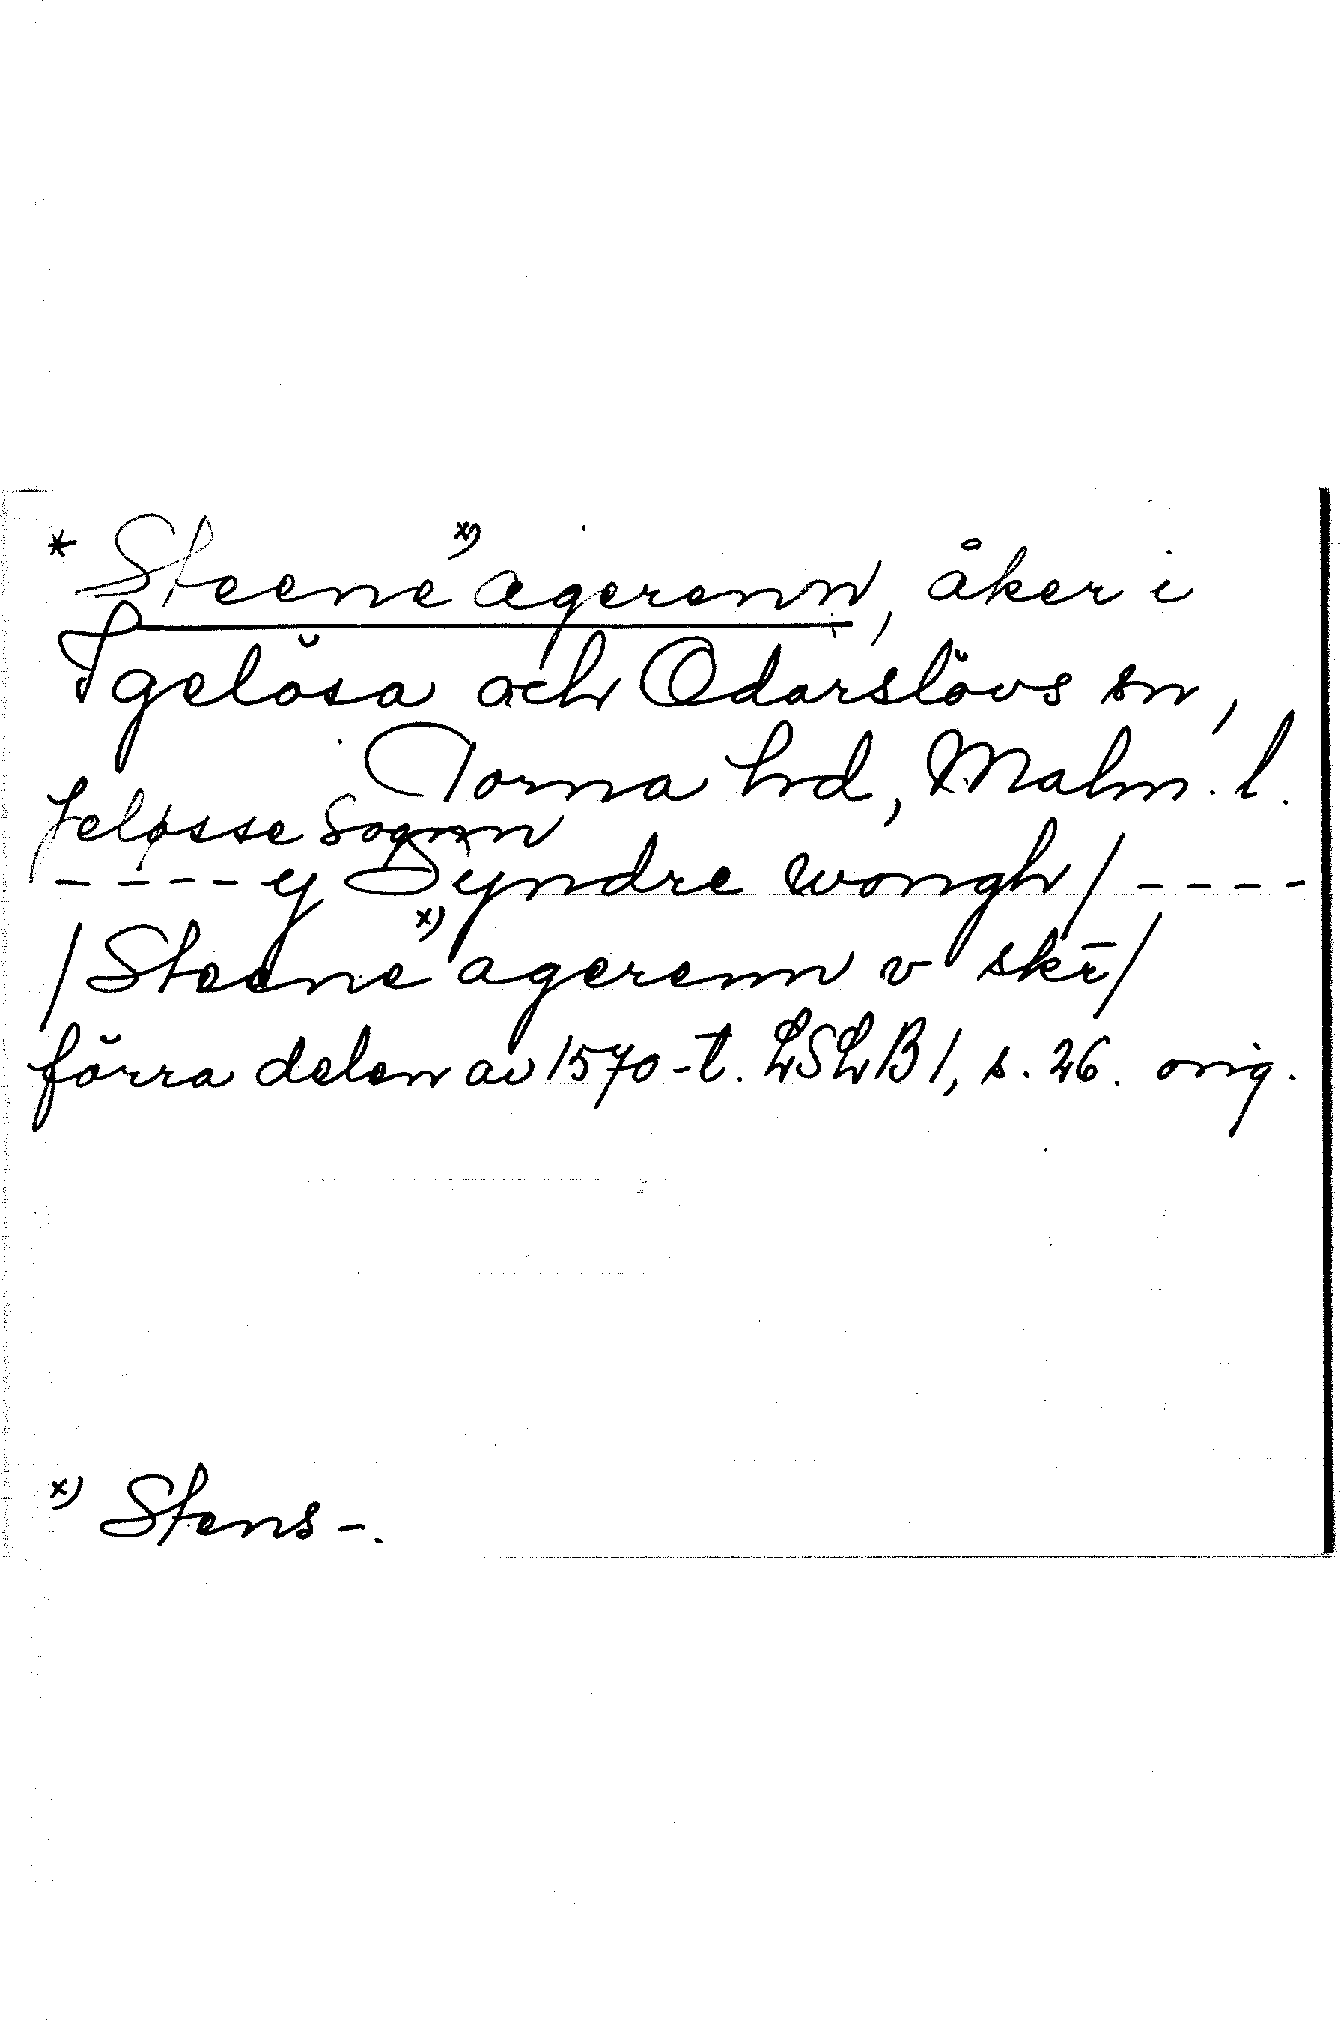 * Steene x) agerenn, åker i
Igelösa och Odarslövs sn,
Torna hd, Malm. l.
Jeløsse Sognn
---- y Syndre wongh / ----
/ Steene x) agerenn v skē /
förra delen av 1570-t. LSLB 1, s. 26. orig.
x) Stens-.